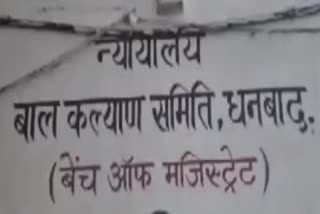 न्यायालय
बाल कल्याण समिति, धनबाद.
(बेंच ऑफ मजिस्ट्रेट)